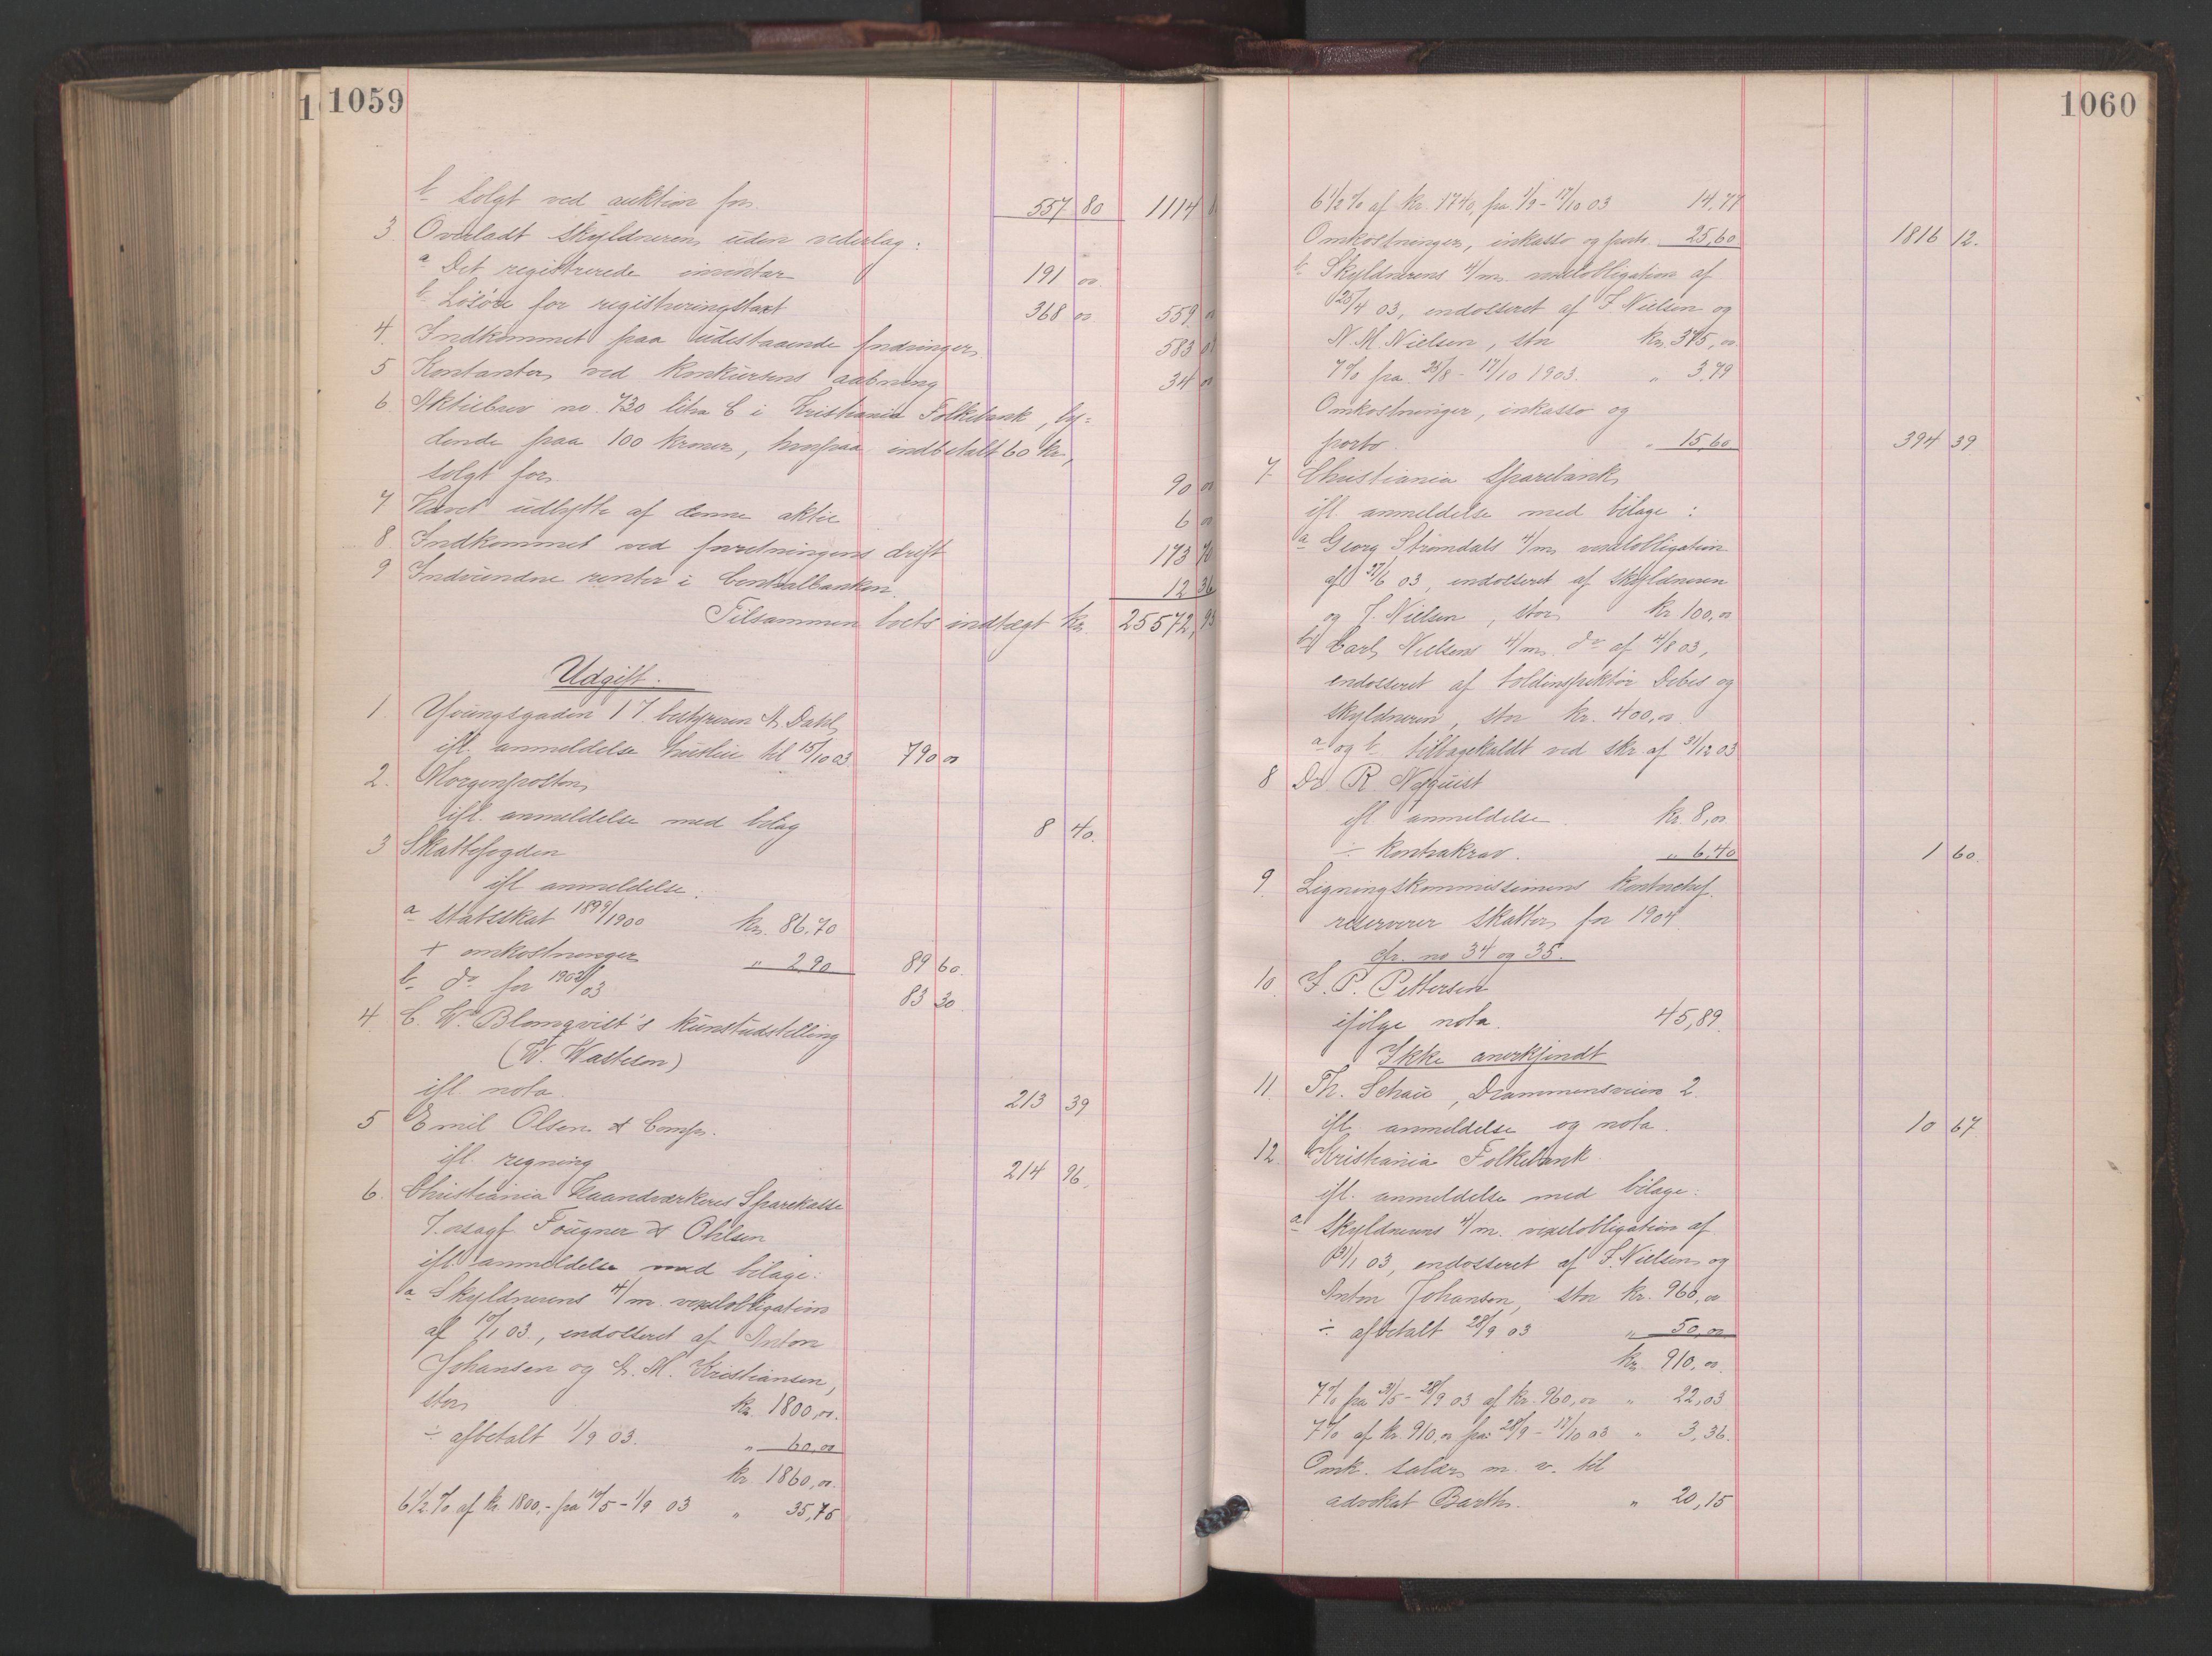 1059
b Solgt ved auktion for 557 80 1114
3 Overladt skyldneren uden vederlag:
a Det registrerede inventar 191 00
b Løsøre for registreringstaxt 368 00 559
4. Indkommet paa udestaaende fordringer 583
5 Kontanter ved konkursens aabning 34 00
6. Aktiebrev no. 730 litra C i Kristiania Folkebank, ly=
dende paa 100 kroner, hvorpaa indbetalt 60 kr,
solgt for 90 00
7 Hævet udbytte af denne aktie 6 00
8. Indkommet ved forretningens drift 173 70
9 Indvundne renter i Centralbanken 12 36
Tilsammen boets indtægt kr. 25572,93
Udgift.
1. Youngsgaden 17 bestyreren A. Dahl,
ifl. anmeldelse husleie til 15/10 03. 790 00
2. Morgenposten,
ifl. anmeldelse med bilag 8 40.
3 Skattefogden
ifl anmeldelse:
a statsskat 1899/1900 kr. 86.70
+ omkostninger " 2.90 89 60.
b do for 1902/03 83 30.
4. C. W. Blomqvist's kunstudstilling
(W. Wasteson)
ifl. nota. 213 39
5 Emil Olsen & Comp.
ifl. regning 214 96.
6. Christiania Haandværkeres Sparekasse
v. osagf. Fougner & Ohlsen
ifl. anmeldelse med bilage:
a Skyldnerens 4/m. vexelobligation
af 10/1 03., endosseret af Anton
Johansen og A. M. Kristiansen,
stor kr. 1800,00.
÷ afbetalt 1/9 03. " 60,00
kr. 1860,00.
6 1/2 % af kr. 1800,- fra 10/5 - 1/9 03 " 35,75
1060
6 1/2 % af kr. 1740, fra 1/9 - 17/10 03 14,77
Omkostninger, inkasso og porto. 25,60 1816 12.
b Skyldnerens 4/m. vexelobligation af
25/4 03, endosseret af F. Nielsen og
N. M. Nielsen, stor kr. 375,00.
7% fra 25/8 - 17/10 1903. " 3,79
Omkostninger, inkasso og
porto. " 15,60 394 39
7. Christiania Sparebank,
ifl. anmeldelse med bilage:
a Georg Strømdals 4/m. vexelobligation
af 27/6 03, endosseret af skyldneren
og F. Nielsen, stor kr 100,00
b Carl Nielsens 4/m. do af 4/8 03,
endosseret af toldinspektør Debes og
skyldneren, stor kr. 400,00.
a og b tilbagekaldt ved skr. af 31/12 03
8 Dr R. Nyquist
ifl. anmeldelse. kr. 8,00
÷ kontrakrav. " 6,40 1 60.
9. Ligningskommissionens kontorchef.
reserverer skatten for 1904.
cfr. no 34 og 35.
10. J. P. Pettersen
ifølge nota. 45,89.
Ikke anerkjendt
11. Th. Schau, Drammensveien 2.
ifl. anmeldelse og nota. 10 67.
12. Kristiania Folkebank.
ifl. anmeldelse med bilage:
a Skyldnerens 4/m. vexelobligation af
31/1 03, endosseret af F. Nielsen og
Anton Johansen, stor kr. 960,00
÷ afbetalt 28/9 03 " 50,00
kr. 910,00.
7% fra 31/5 - 28/9 03 af kr. 960,00 " 22,03
7% af kr. 910,00 fra 28/9 - 17/10 03 " 3,36.
Omk. salær m. v. til
advokat Barth. " 20,15